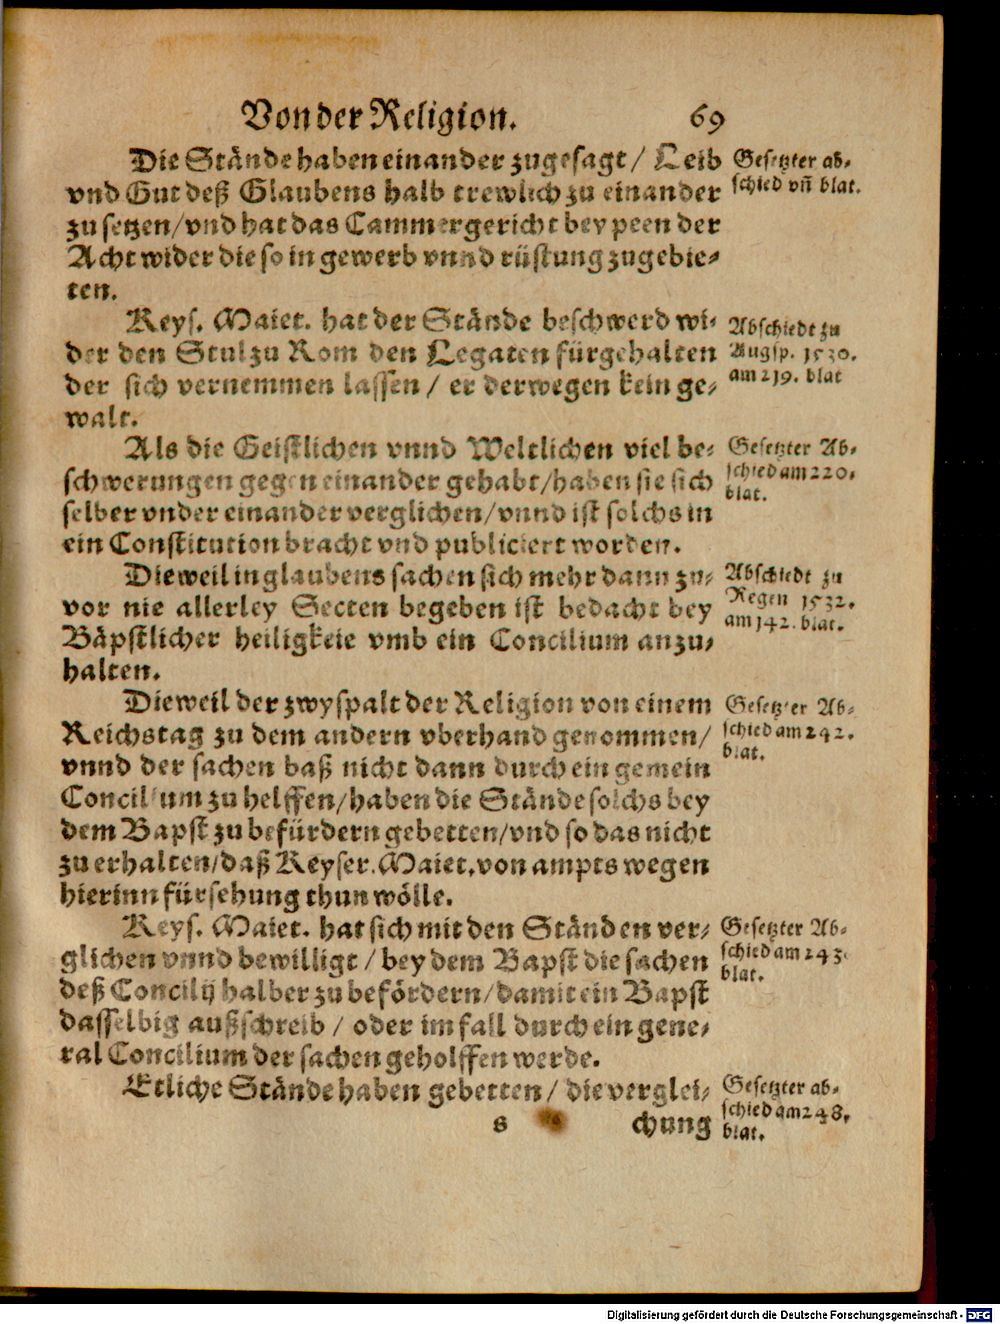 Von der Religion. 69
Die Stände haben einander zugesagt / Leib
vnd Gut deß Glaubens halb trewlich zu einander
zu setzen / vnd hat das Cammergericht bey peen der
Acht wider die so in gewerb vnnd rüstung zugebie-
ten.
Gesetzter ab-
schied vñ blat.
Keys. Maiet. hat der Stände beschwerd wi-
der den Stul zu Rom den Legaten fürgehalten
der sich vernemmen lassen / er derwegen kein ge-
walt.
Abschiedt zu
Augsp. 1530.
am 219. blat
Als die Geistlichen vnnd Weltlichen viel be-
schwerungen gegen einander gehabt / haben sie sich
selber vnder einander verglichen / vnnd ist solchs in
ein Constitution bracht vnd publiciert worden.
Gesetzter Ab-
schied am 220.
blat.
Dieweil in glaubens sachen sich mehr dann zu-
vor nie allerley Secten begeben ist bedacht bey
Bäpstlicher heiligkeie vmb ein Concilium anzu-
halten.
Abschiedt zu
Regen 1532.
am 142. blat.
Dieweil der zwyspalt der Religion von einem
Reichstag zu dem andern vberhand genommen /
vnnd der sachen baß nicht dann durch ein gemein
Concilium zu helffen / haben die Stände solchs bey
dem Bapst zu befürdern gebetten / vnd so das nicht
zu erhalten / daß Keyser. Maiet. von ampts wegen
hierinn fürsehung thun wölle.
Gesetzter Ab-
schied am 242.
blat.
Keys. Maiet. hat sich mit den Ständen ver-
glichen vnnd bewilligt / bey dem Bapst die sachen
deß Concilij halber zu befördern / damit ein Bapst
dasselbig außschreib / oder im fall durch ein gene-
ral Concilium der sachen geholffen werde.
Gesetzter Ab-
schied am 243.
blat.
Etliche Stände haben gebetten / die verglei-
Gesetzter ab-
schied am 248.
blat.
s chung
Digitalisierung gefördert durch die Deutsche Forschungsgemeinschaft - DFG